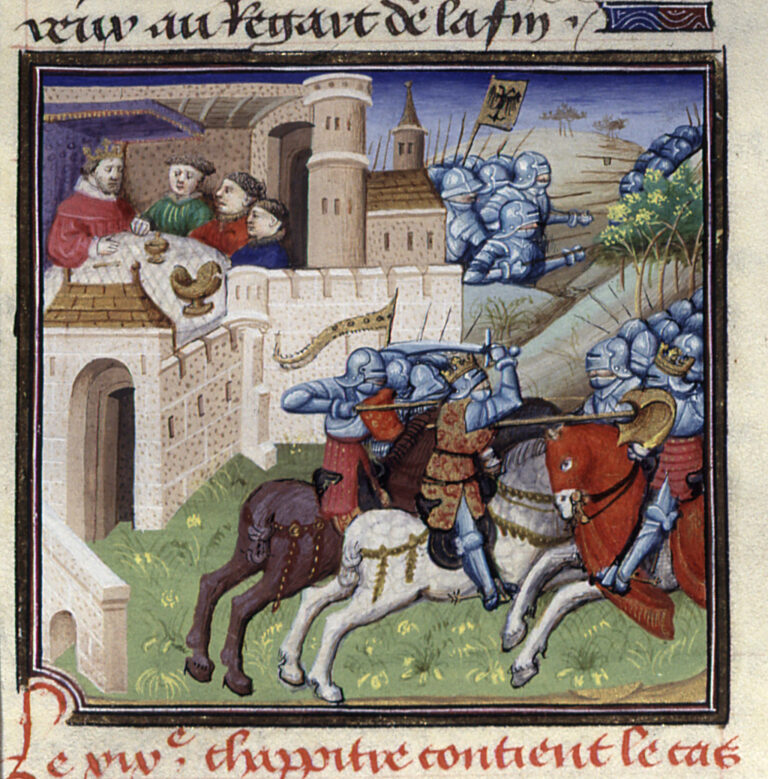 au Regart de la fin .
Le xiv.e chappitre contient le cas